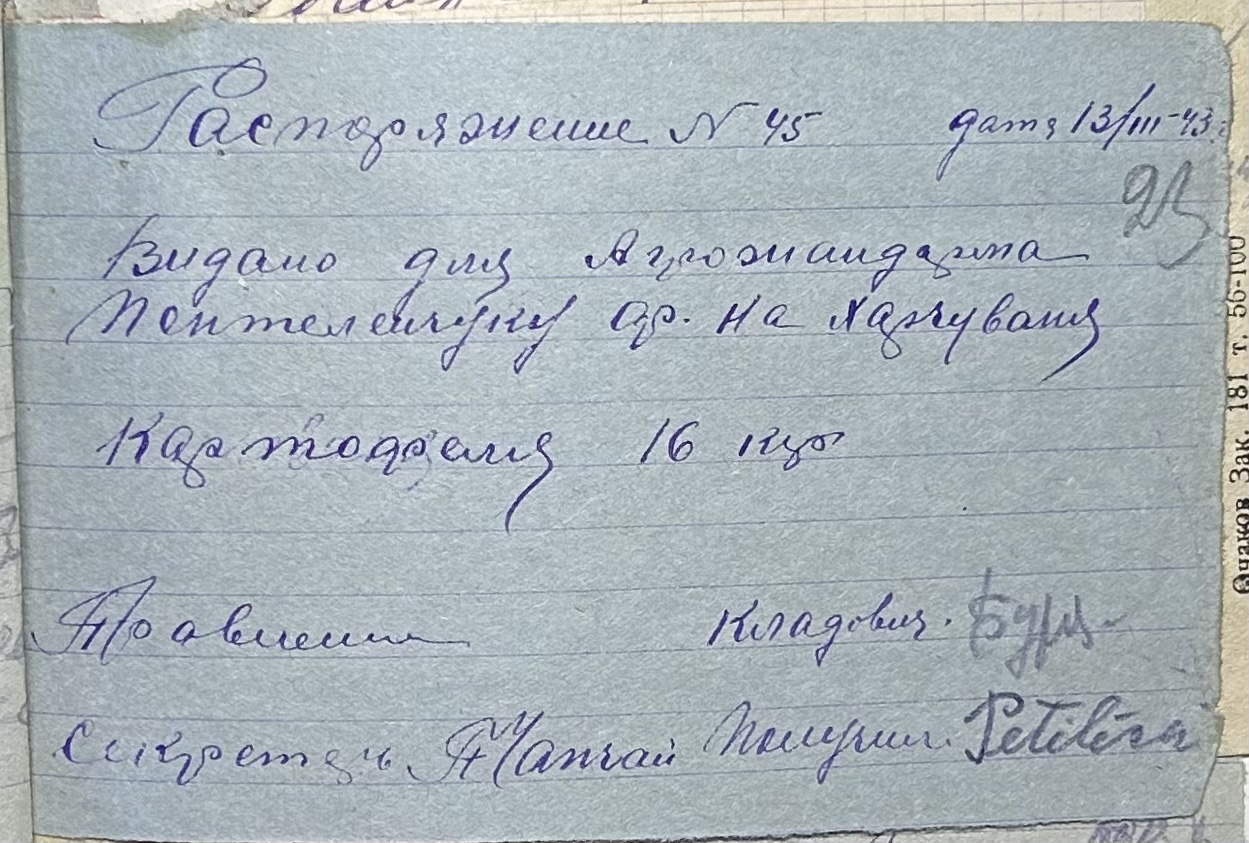 Распоряжение N 45 дата 13/III-43 г
Видано для Агрожандарма
Пентелейчуку ар. на харчування
Картофеля 16 кгр
Правление Кладовщ.
Секретарь Получил.
Очаков Зак. 181 т. 56-100